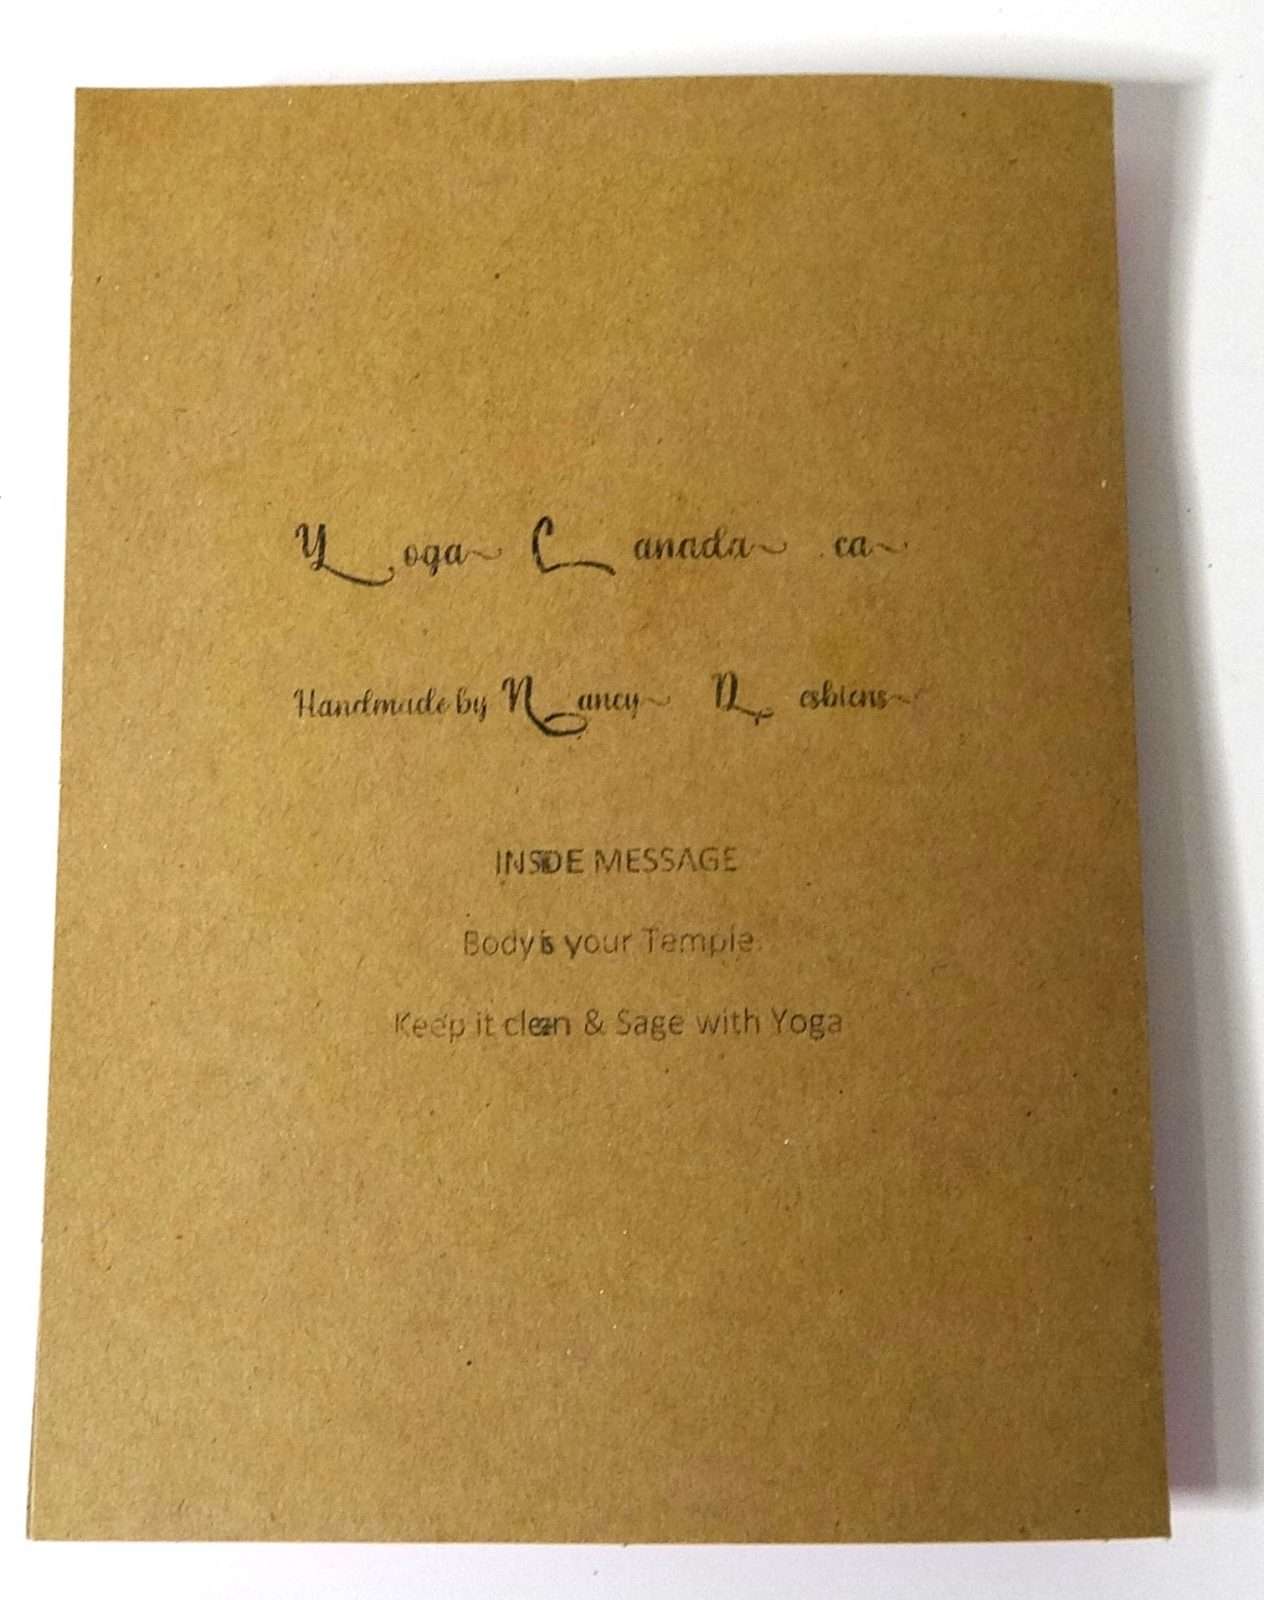 Yoga Canada .ca
Handmade by Nancy Desbiens
INSIDE MESSAGE
Body is your Temple.
Keep it clean & Sage with Yoga